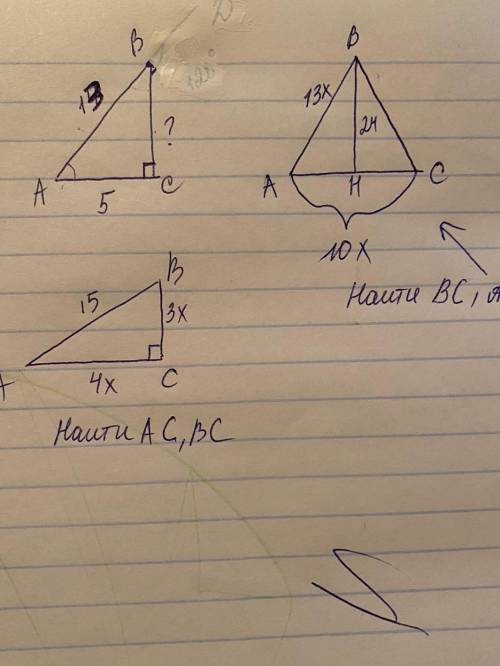 B
13
?
A
5
C
B
13x
24
A
H
C
10x
Найти BC,
B
15
3x
A
4x
C
Найти AC, BC